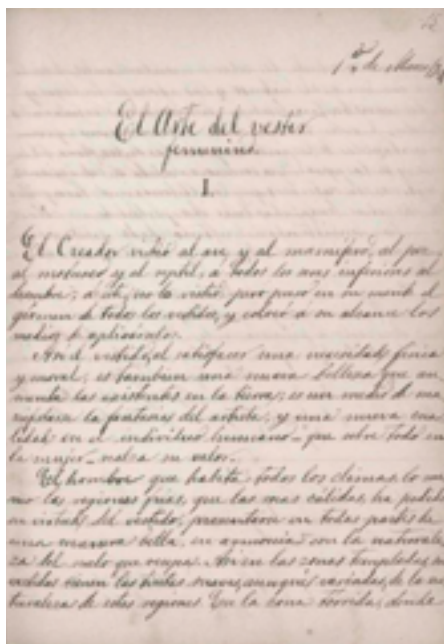 1º de Marzo
El Arte del vestir
femenino.
I.
El Creador vistió al ave y al mamífero, al pez,
al molusco y al reptil, á todos los seres inferiores al
hombre; á éste, no lo vistió pero puso en su mente el
gérmen de todos los vestidos, y colocó á su alcance los
medios de aplicárselos.
Así el vestido, al satisfacer una necesidad física
y moral, es tambien una nueva belleza que au-
menta las existentes en la tierra; es un medio de ma-
nifestar la fantasía del artista, y una nueva cua-
lidad en el individuo humano - que sobre todo en
la mujer - realza su valor.
El hombre que habita todos los climas, lo mis-
mo las regiones frias, que las mas cálidas, ha podido
en virtud del vestido, presentarse en todas partes de
una manera bella, en armonía con la naturale-
za del suelo que ocupa. Asi en las zonas templadas, sus
vestidos tienen las tintas suaves, aunque variadas, de la na-
turaleza de estas regiones. En la zona torrida, donde